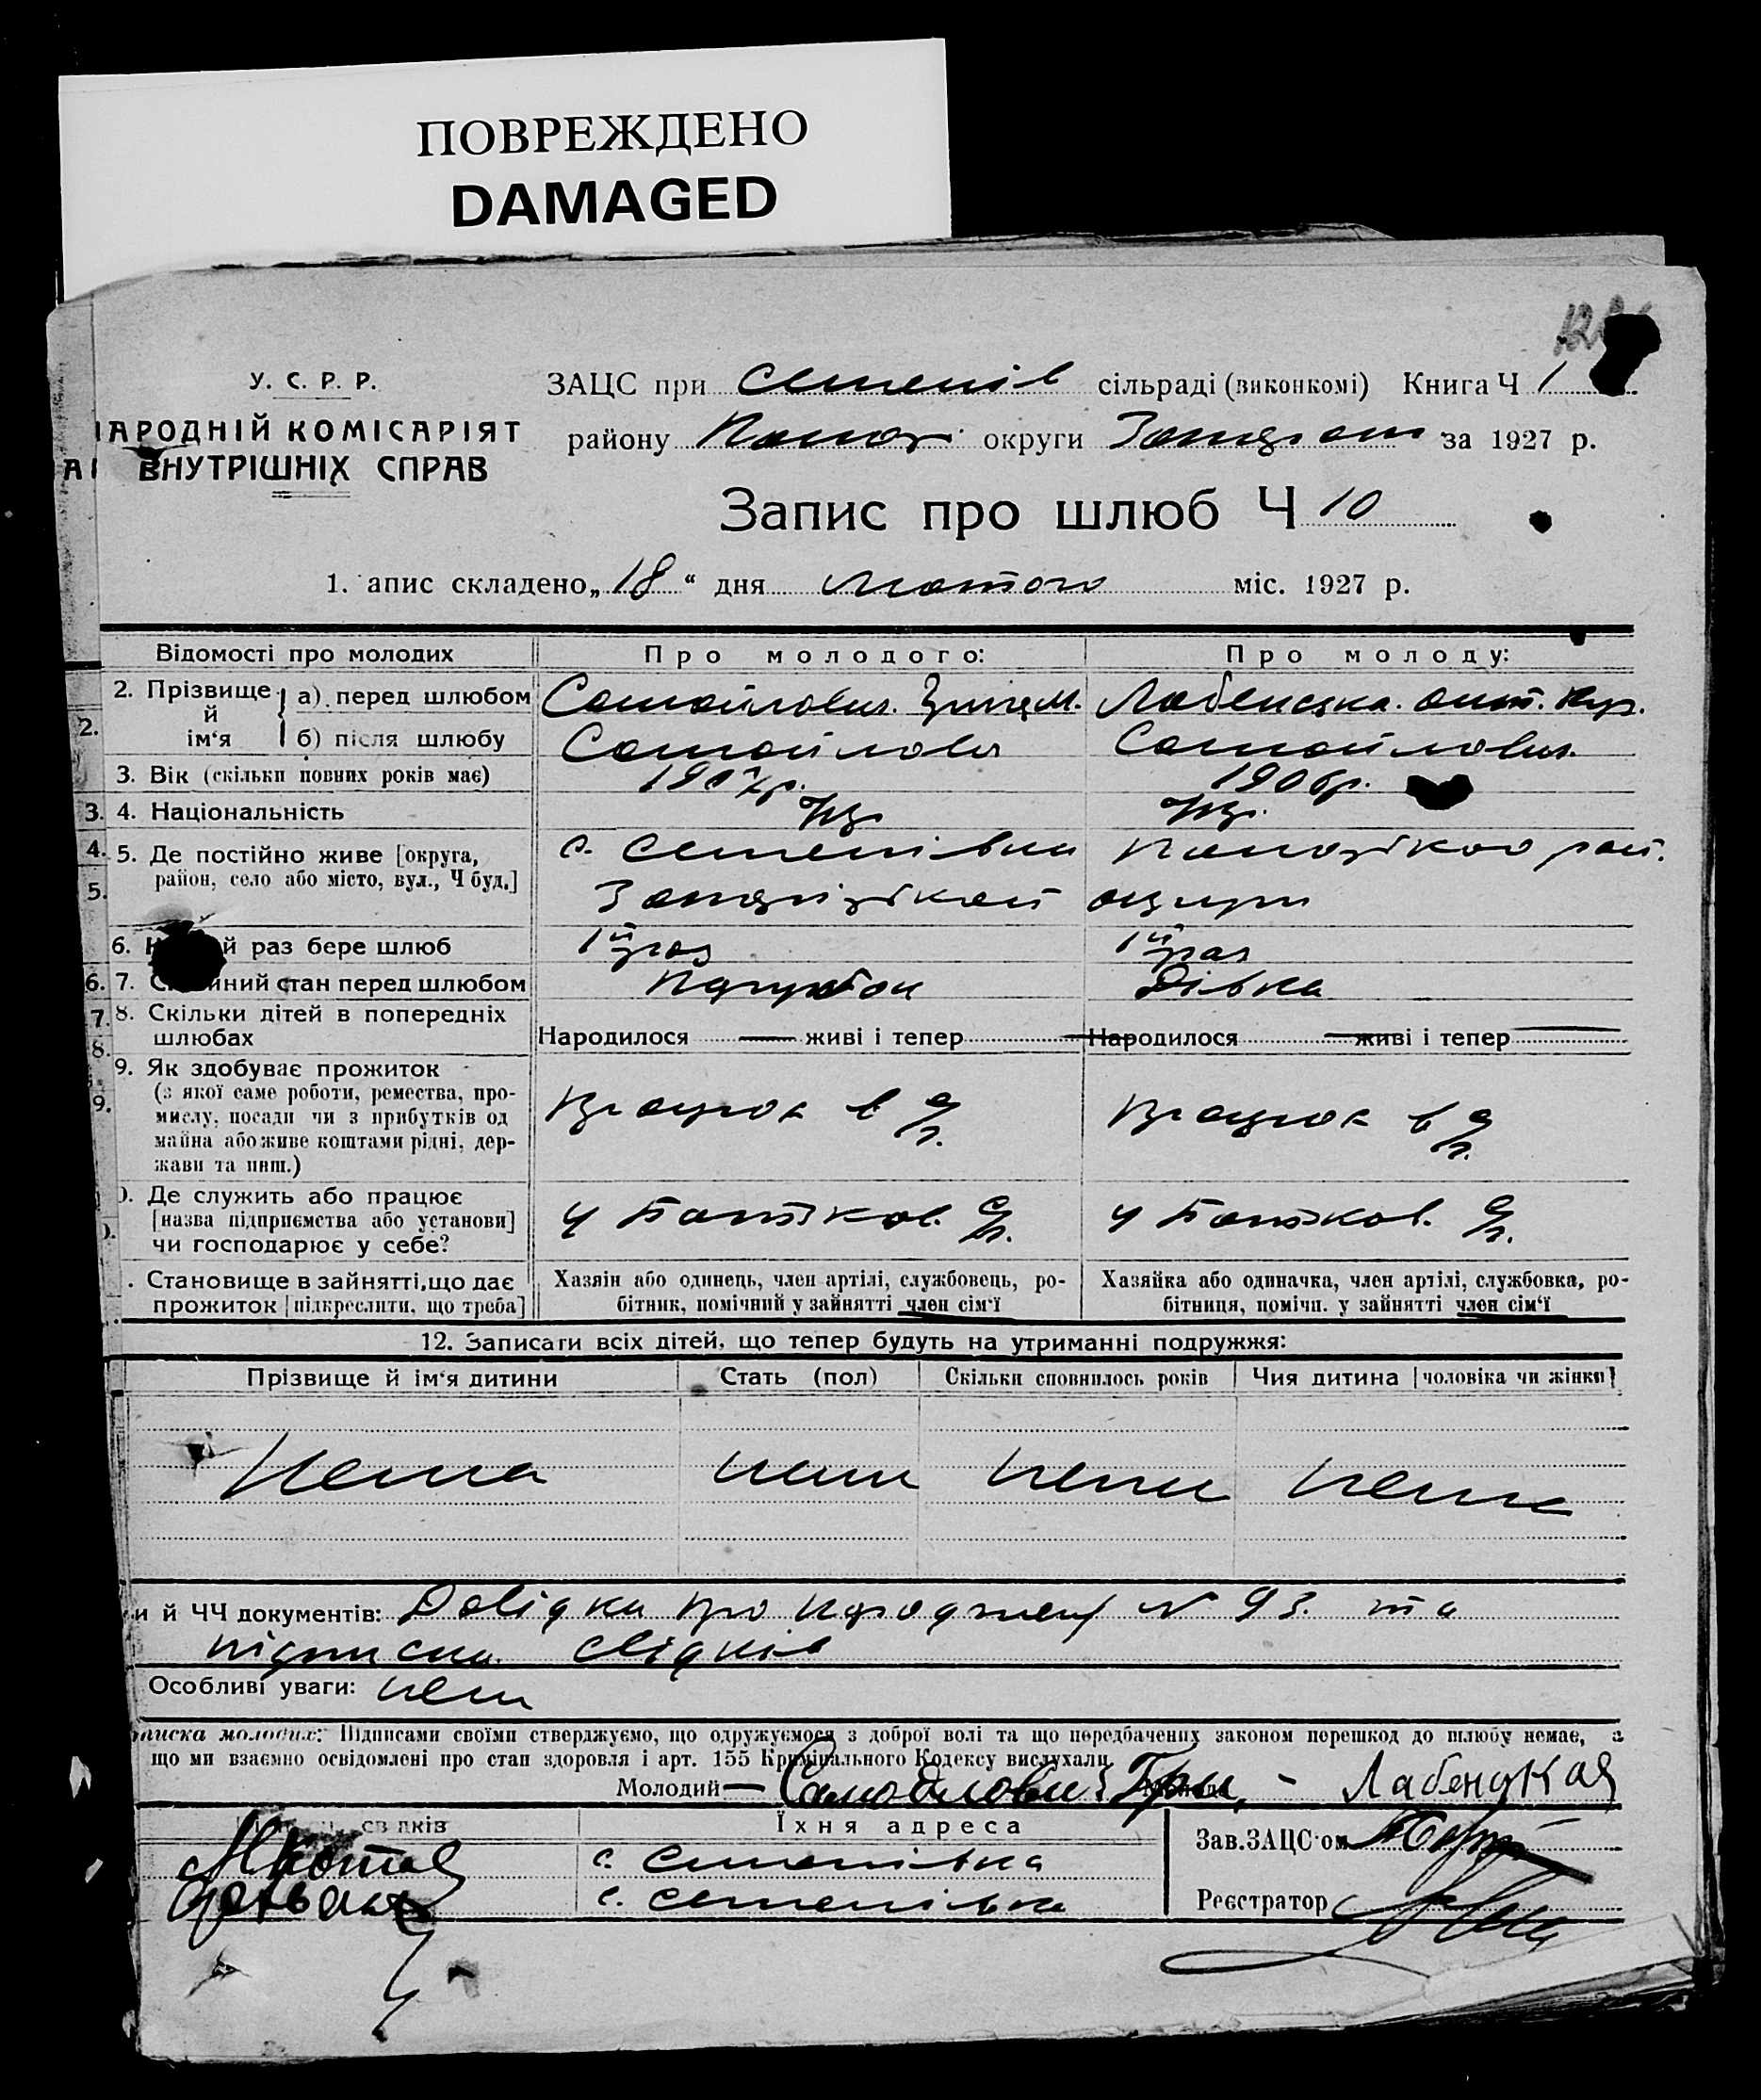 ПОВРЕЖДЕНО
DAMAGED
У. С. Р. Р.
АРОДНІЙ КОМІСАРІЯТ
ВНУТРІШНІХ СПРАВ
ЗАЦС при Семенів сільраді (виконкомі) Книга Ч 1
району округи за 1927 р.
Запис про шлюб Ч 10
1. апис складено „18“ дня лютого міс. 1927 р.
Відомості про молодих Про молодого: Про молоду:
2. Прізвище й ім‘я а) перед шлюбом Самойлович Лабенська
б) після шлюбу Самойлович Самойлович
3. Вік (скільки повних років має) 1907р. 1906р.
4. Національність
5. Де постійно живе [округа, с. Семенівка
район, село або місто, вул., Ч буд.]
6. й раз бере шлюб 1й раз 1й раз
7. йний стан перед шлюбом Парубок Дівка
8. Скільки дітей в попередніх
шлюбах Народилося — живі і тепер Народилося — живі і тепер
9. Як здобуває прожиток
(з якої саме роботи, ремества, про-
мислу, посади чи з прибутків од
майна або живе коштами рідні, дер-
жави та инш.)
Де служить або працює
[назва підприємства або установи] у Батьков. у Батьков.
чи господарює у себе?
. Становище в зайнятті, що дає Хазяїн або одинець, член артілі, службовець, ро- Хазяйка або одиначка, член артілі, службовка, ро-
прожиток [підкреслити, що треба] бітник, помічний у зайнятті член сім‘ї бітниця, помічн. у зайнятті член сім‘ї
12. Записати всіх дітей, що тепер будуть на утриманні подружжя:
Прізвище й ім‘я дитини Стать (пол) Скільки сповнилось років Чия дитина [чоловіка чи жінки]
Нема нема нема нема
и й ЧЧ документів: Довідка про народжен N 93. та
підписка свідків
Особливі уваги: нема
писка молодих: Підписами своїми стверджуємо, що одружуємося з доброї волі та що передбачених законом перешкод до шлюбу немає, а
що ми взаємно освідомлені про стан здоровля і арт. 155 Кримінального Кодексу вислухали
Молодий — Самойлович Гри — Лабендкая
Їхня адреса
с. Семенівка Зав. ЗАЦС‘ом
с. Семенівка Реєстратор